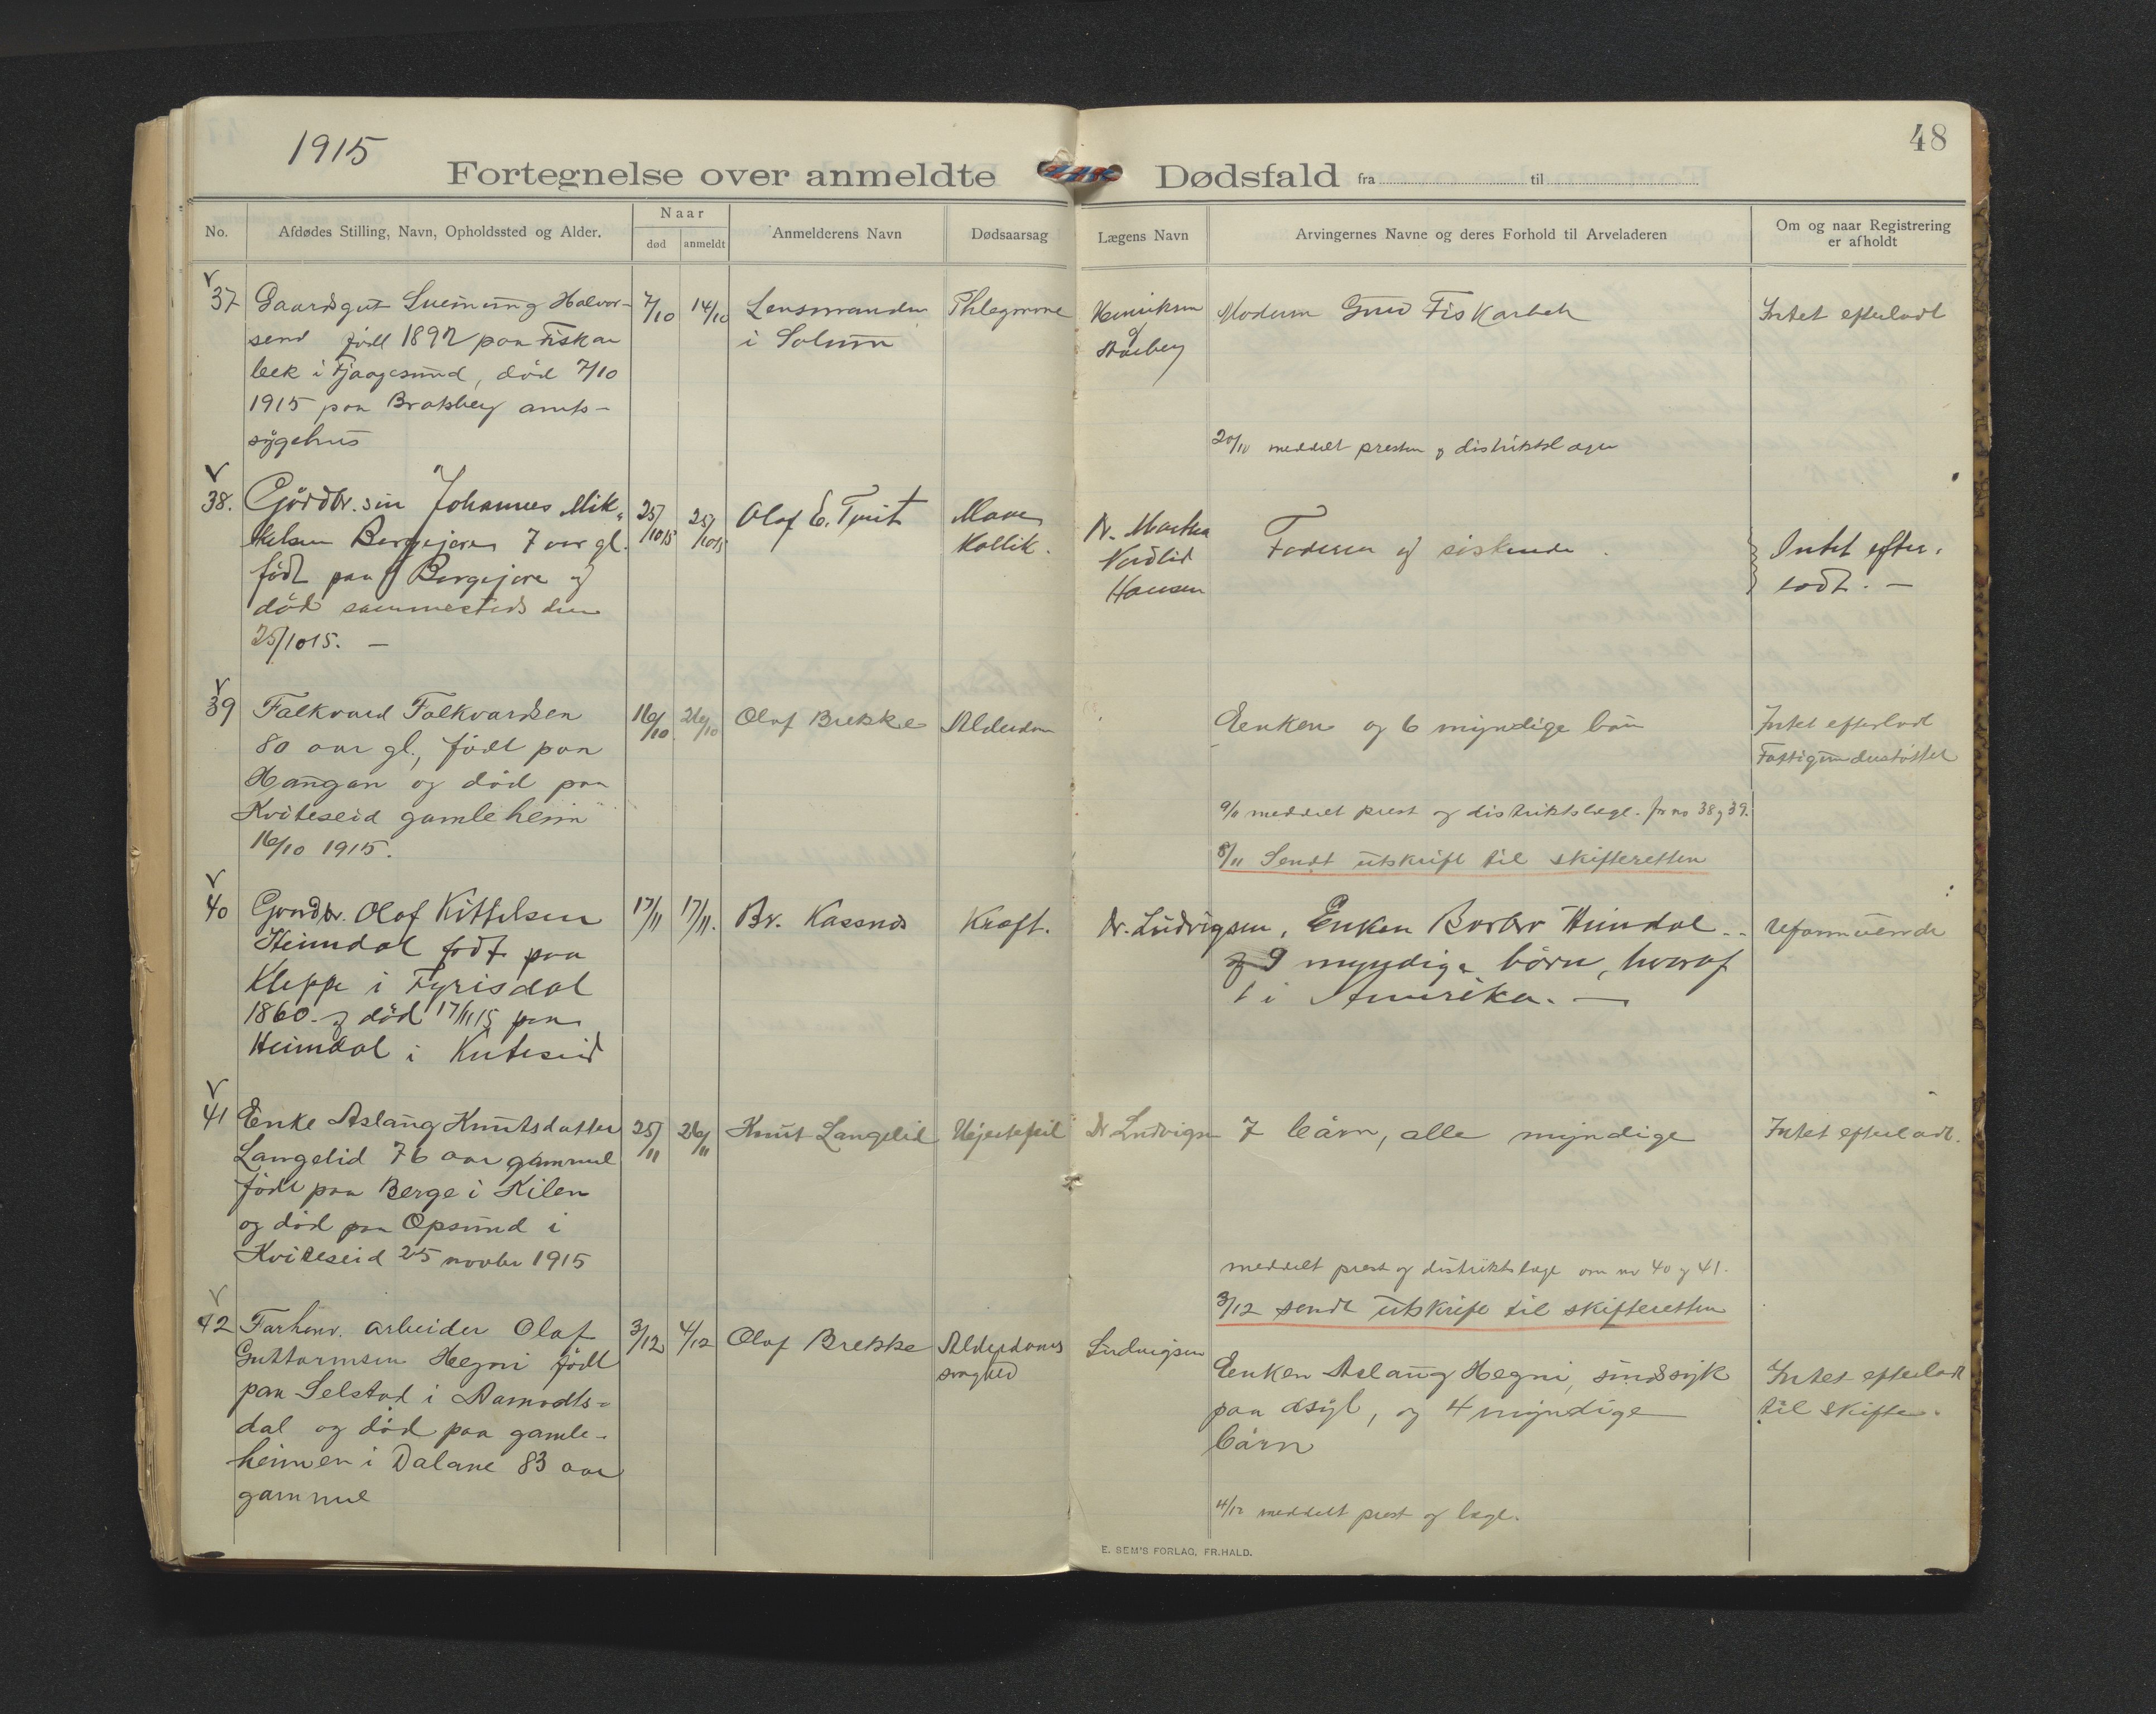 1915
48
Fortegnelse over anmeldte Dødsfald fra til
No.
Afdødes Stilling, Navn, Opholdssted og Alder.
Naar
død
anmeldt
Anmelderens Navn
Dødsaarsag
Lægens Navn
Arvingernes Navne og deres Forhold til Arveladeren
Om og naar Registrering
er afholdt
37 Gaardsgut Halvor-
send født 1892 paa Fiskar
bek i Fjaagesund, død 7/10
1915 paa Bratsberg amts-
sygehus
7/10
14/10
Lensmanden
i Solum
Phlegmone
Henriksen
og
Moderen Fiskarbek
20/10 meddelt presten og distriktslægen
Intet efterladt
38. Gårdbr. søn Johannes Mik-
kelsen 7 aar gl.
født paa og
død sammesteds den
25/10 15. —
25/10 15
25/10 15
Olaf E. Tveit
Mave
Kollik.
Dr. Martha
Nordlid
Hansen
Faderen og siskende.
Intet efter-
ladt. —
39 Falkvard Falkvardsen
80 aar gl., født paa
Haugan og død paa
Kviteseid gamleheim
16/10 1915.
16/10
26/10
Olaf Brekke
Alderdom
Eenken og 6 myndige børn
9/11 meddelt prest og distriktslæge. for no 38 og 39.
8/11 Sendt utskrift til skifteretten
Intet efterladt
Fattigunderstøttet
40 Gaardbr. Olaf Kittelsen
Heimdal født paa
Kleppe i Fyrisdal
1860 og død 17/11 15 paa
Heimdal i Kviteseid
17/11
17/11.
Br. Kassnes
Kræft.
Dr. Ludvigsen,
Enken Barbro Heimdal
og 9 myndige børn, hvoraf
1 i Amerika. —
Uformuende
41 Enke Aslaug Knutsdatter
Langelid 76 aar gammel
født paa Berge i Kilen
og død paa Opsund i
Kviteseid 25 novbr 1915
25/11
26/11
Knut Langelid
Hjertefeil
Dr Ludvigsen
7 bårn, alle myndige
meddelt prest og distriktslæge om no 40 og 41.
3/12 sendt utskrift til skifteretten
Intet efterladt.
42 Farhenv. arbeider Olaf
Guttormsen Hegni født
paa Selstad i Aamodts-
dal og død paa gamle-
heimen i Dalane 83 aar
gammel
3/12
4/12
Olaf Brekke
Alderdoms
svaghed
Ludvigsen
Eenken Aslaug Hegni, sindssyk
paa asyl, og 4 myndige
bårn
4/12 meddelt prest og læge.
Intet efterladt
til skifte.
E. SEM'S FORLAG, FR.HALD.